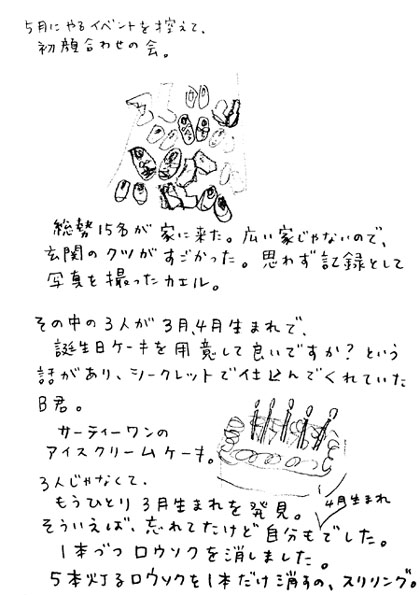 5月にやるイベントを控えて、
初顔合わせの会。
総勢15名が家に来た。広い家じゃないので、
玄関のクツがすごかった。思わず記録として
写真を撮ったカエル。
その中の3人が3月、4月生まれで、
誕生日ケーキを用意して良いですか？という
話があり、シークレットで仕込んでくれていた
B君。
サーティーワンの
アイスクリームケーキ。
3人じゃなくて、
もうひとり3月生まれを発見。
4月生まれ
そういえば、忘れてたけど自分もでした。
1本づつロウソクを消しました。
5本灯るロウソクを1本だけ消すの、スリリング。